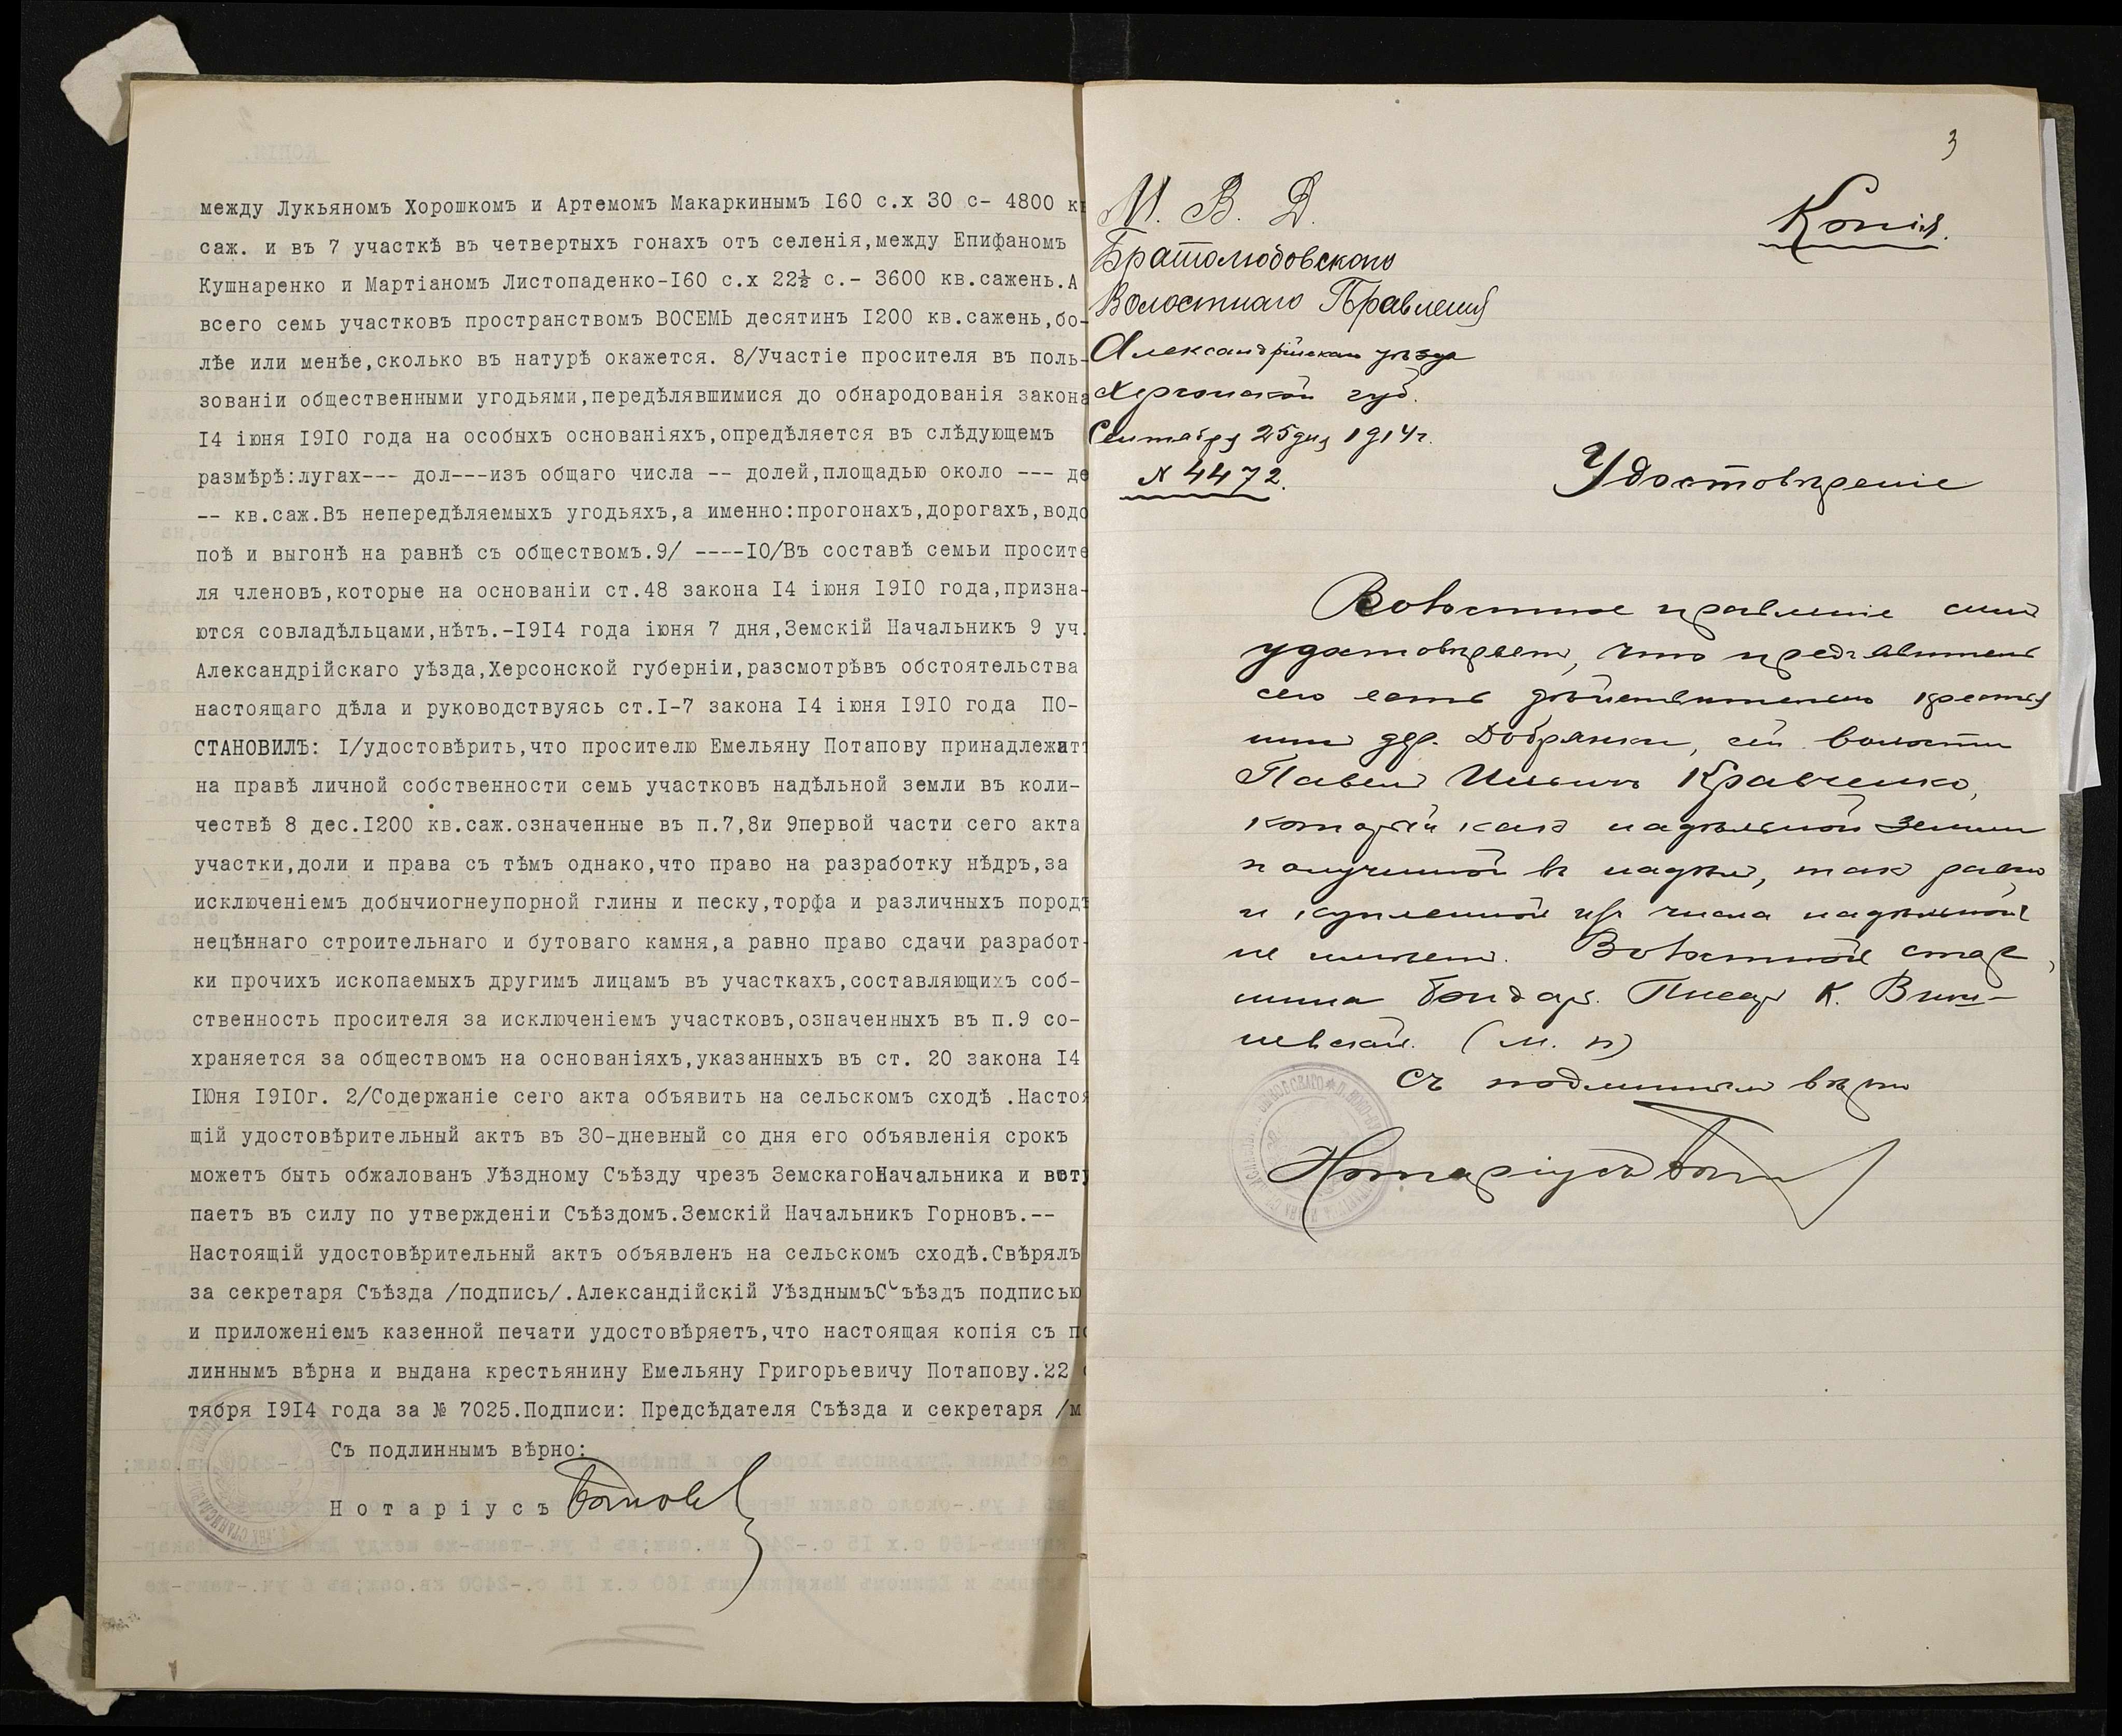 между Лукьяномъ Хорошкомъ и Артемомъ Макаркинымъ I60 с.х 30 с- 4800 кв
саж. и въ 7 участкѣ въ четвертыхъ гонахъ отъ селенія,между Епифаномъ
Кушнаренко и Мартіаномъ Листопаденко-I60 с.х 22½ с.- 3600 кв.сажень.А
всего семь участковъ пространствомъ ВОСЕМЬ десятинъ I200 кв.сажень,бо-
лѣе или менѣе,сколько въ натурѣ окажется. 8/Участіе просителя въ поль-
зованіи общественными угодьями,передѣлявшимися до обнародованія закона
I4 іюня I9I0 года на особыхъ основаніяхъ,опредѣляется въ слѣдующемъ
размѣрѣ:лугах--- дол---изъ общаго числа -- долей,площадью около --- де
-- кв.саж.Въ непередѣляемыхъ угодьяхъ,а именно:прогонахъ,дорогахъ,водо
поѣ и выгонѣ на равнѣ съ обществомъ.9/ ----I0/Въ составѣ семьи просите
ля членовъ,которые на основаніи ст.48 закона I4 іюня I9I0 года,призна-
ются совладѣльцами,нѣтъ.-I9I4 года іюня 7 дня,Земскій Начальникъ 9 уч.
Александрійскаго уѣзда,Херсонской губерніи,разсмотрѣвъ обстоятельства
настоящаго дѣла и руководствуясь ст.I-7 закона I4 іюня I9I0 года ПО-
СТАНОВИЛЪ: I/удостовѣрить,что просителю Емельяну Потапову принадлежатъ
на правѣ личной собственности семь участковъ надѣльной земли въ коли-
чествѣ 8 дес.I200 кв.саж.означенные въ п.7,8и 9первой части сего акта
участки,доли и права съ тѣмъ однако,что право на разработку нѣдръ,за
исключеніемъ добычиогнеупорной глины и песку,торфа и различныхъ породъ
нецѣннаго строительнаго и бутоваго камня,а равно право сдачи разработ-
ки прочихъ ископаемыхъ другимъ лицамъ въ участкахъ,составляющихъ соб-
ственность просителя за исключеніемъ участковъ,означенныхъ въ п.9 со-
храняется за обществомъ на основаніяхъ,указанныхъ въ ст. 20 закона I4
IЮня I9I0г. 2/Содержаніе сего акта объявить на сельскомъ сходѣ .Настоя
щій удостовѣрительный актъ въ 30-дневный со дня его объявленія срокъ
можетъ быть обжалованъ Уѣздному Съѣзду чрезъ ЗемскагоНачальника и всту
паетъ въ силу по утвержденіи Съѣздомъ.Земскій Начальникъ Горновъ.--
Настоящій удостовѣрительный актъ объявленъ на сельскомъ сходѣ.Свѣрялъ
за секретаря Съѣзда /подпись/.Александійскій УѣзднымъСъѣздъ подписью
и приложеніемъ казенной печати удостовѣряетъ,что настоящая копія съ по
линнымъ вѣрна и выдана крестьянину Емельяну Григорьевичу Потапову.22
тября I9I4 года за № 7025.Подписи: Предсѣдателя Съѣзда и секретаря /м
Съ подлиннымъ вѣрно:
Нотаріусъ
3
М. В. Д.
Копія.
Братолюбовскаго
Волостнаго Правленія
Александрійскаго уѣзда
Херсонской губ.
Сентября 25 дня 1914 г.
N 4472.
Удостовѣреніе
Волостное правленіе симъ
удостовѣряетъ, что предъявитель
сего есть дѣйствительно крестья
нинъ дер. Добрянки, сей волости
Павелъ Ильичъ Кравченко,
который какъ надѣльной земли
полученной въ надѣлъ, такъ равно
и купленной изъ числа надѣльной
не имѣетъ. Волостной стар
шина Бондарь. Писарь К. Виш-
невскій. (М. п)
Съ подлиннымъ вѣрно
Нотаріусъ